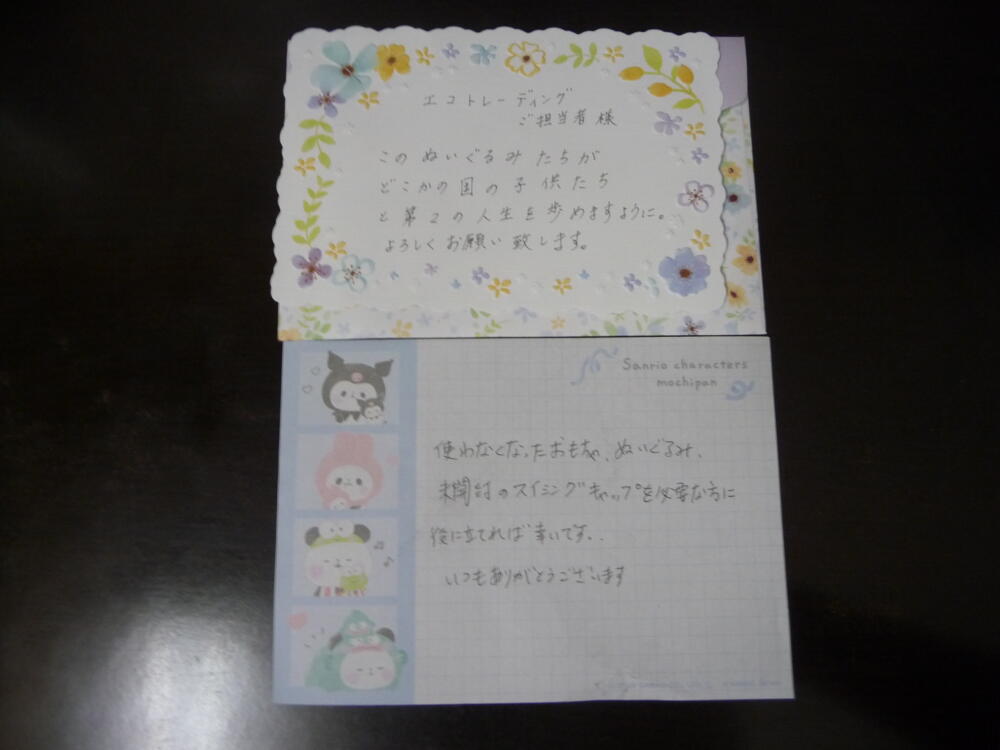 エコトレーディング
ご担当者様
このぬいぐるみたちが
どこかの国の子供たち
と第2の人生を歩めますように。
よろしくお願い致します。
Sanrio characters
mochipan
使わなくなったおもちゃ、ぬいぐるみ、
未開封のスイミングキャップを必要な方に
役に立てれば幸いです。
いつもありがとうございます